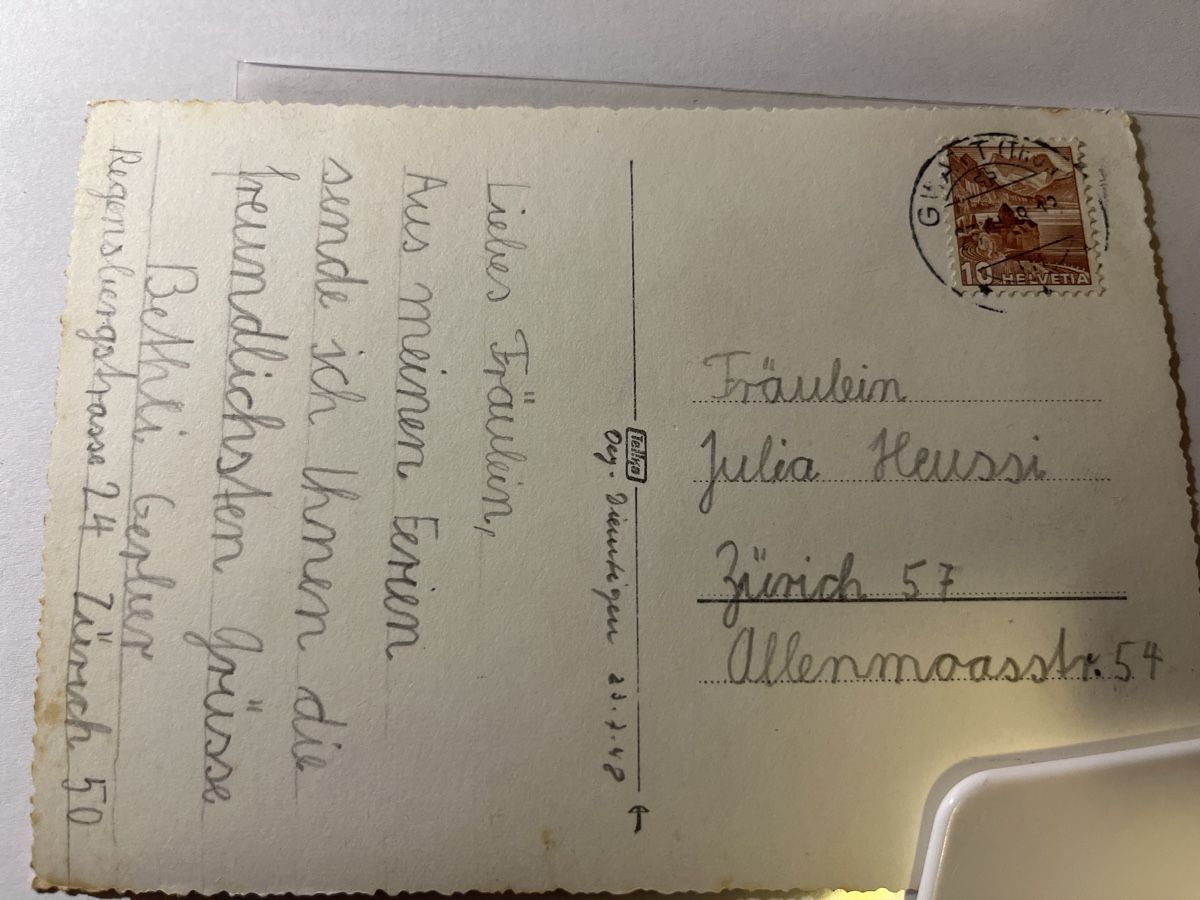 Liebes Fräulein,
Aus meinen Ferien
sende ich Ihnen die
freundlichsten Grüsse
Bethli Gerber
Regensbergstrasse 24 Zürich 50
Tellko
Oey-Diemtigen 23.7.48
10 HELVETIA
Fräulein
Julia Heussi
Zürich 57
Allenmoosstr. 54